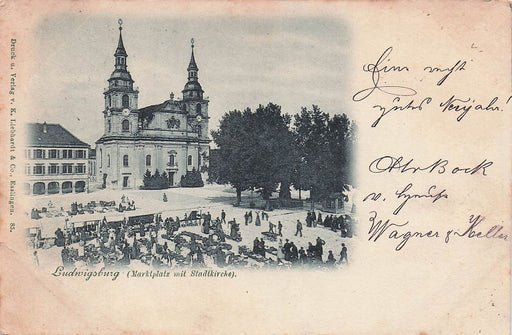 Druck u. Verlag v. K. Liebhardt & Co., Esslingen. 85.
Ein recht
gutes Neujahr!
Otto Bock
Wagner & Keller
Ludwigsburg (Marktplatz mit Stadtkirche).